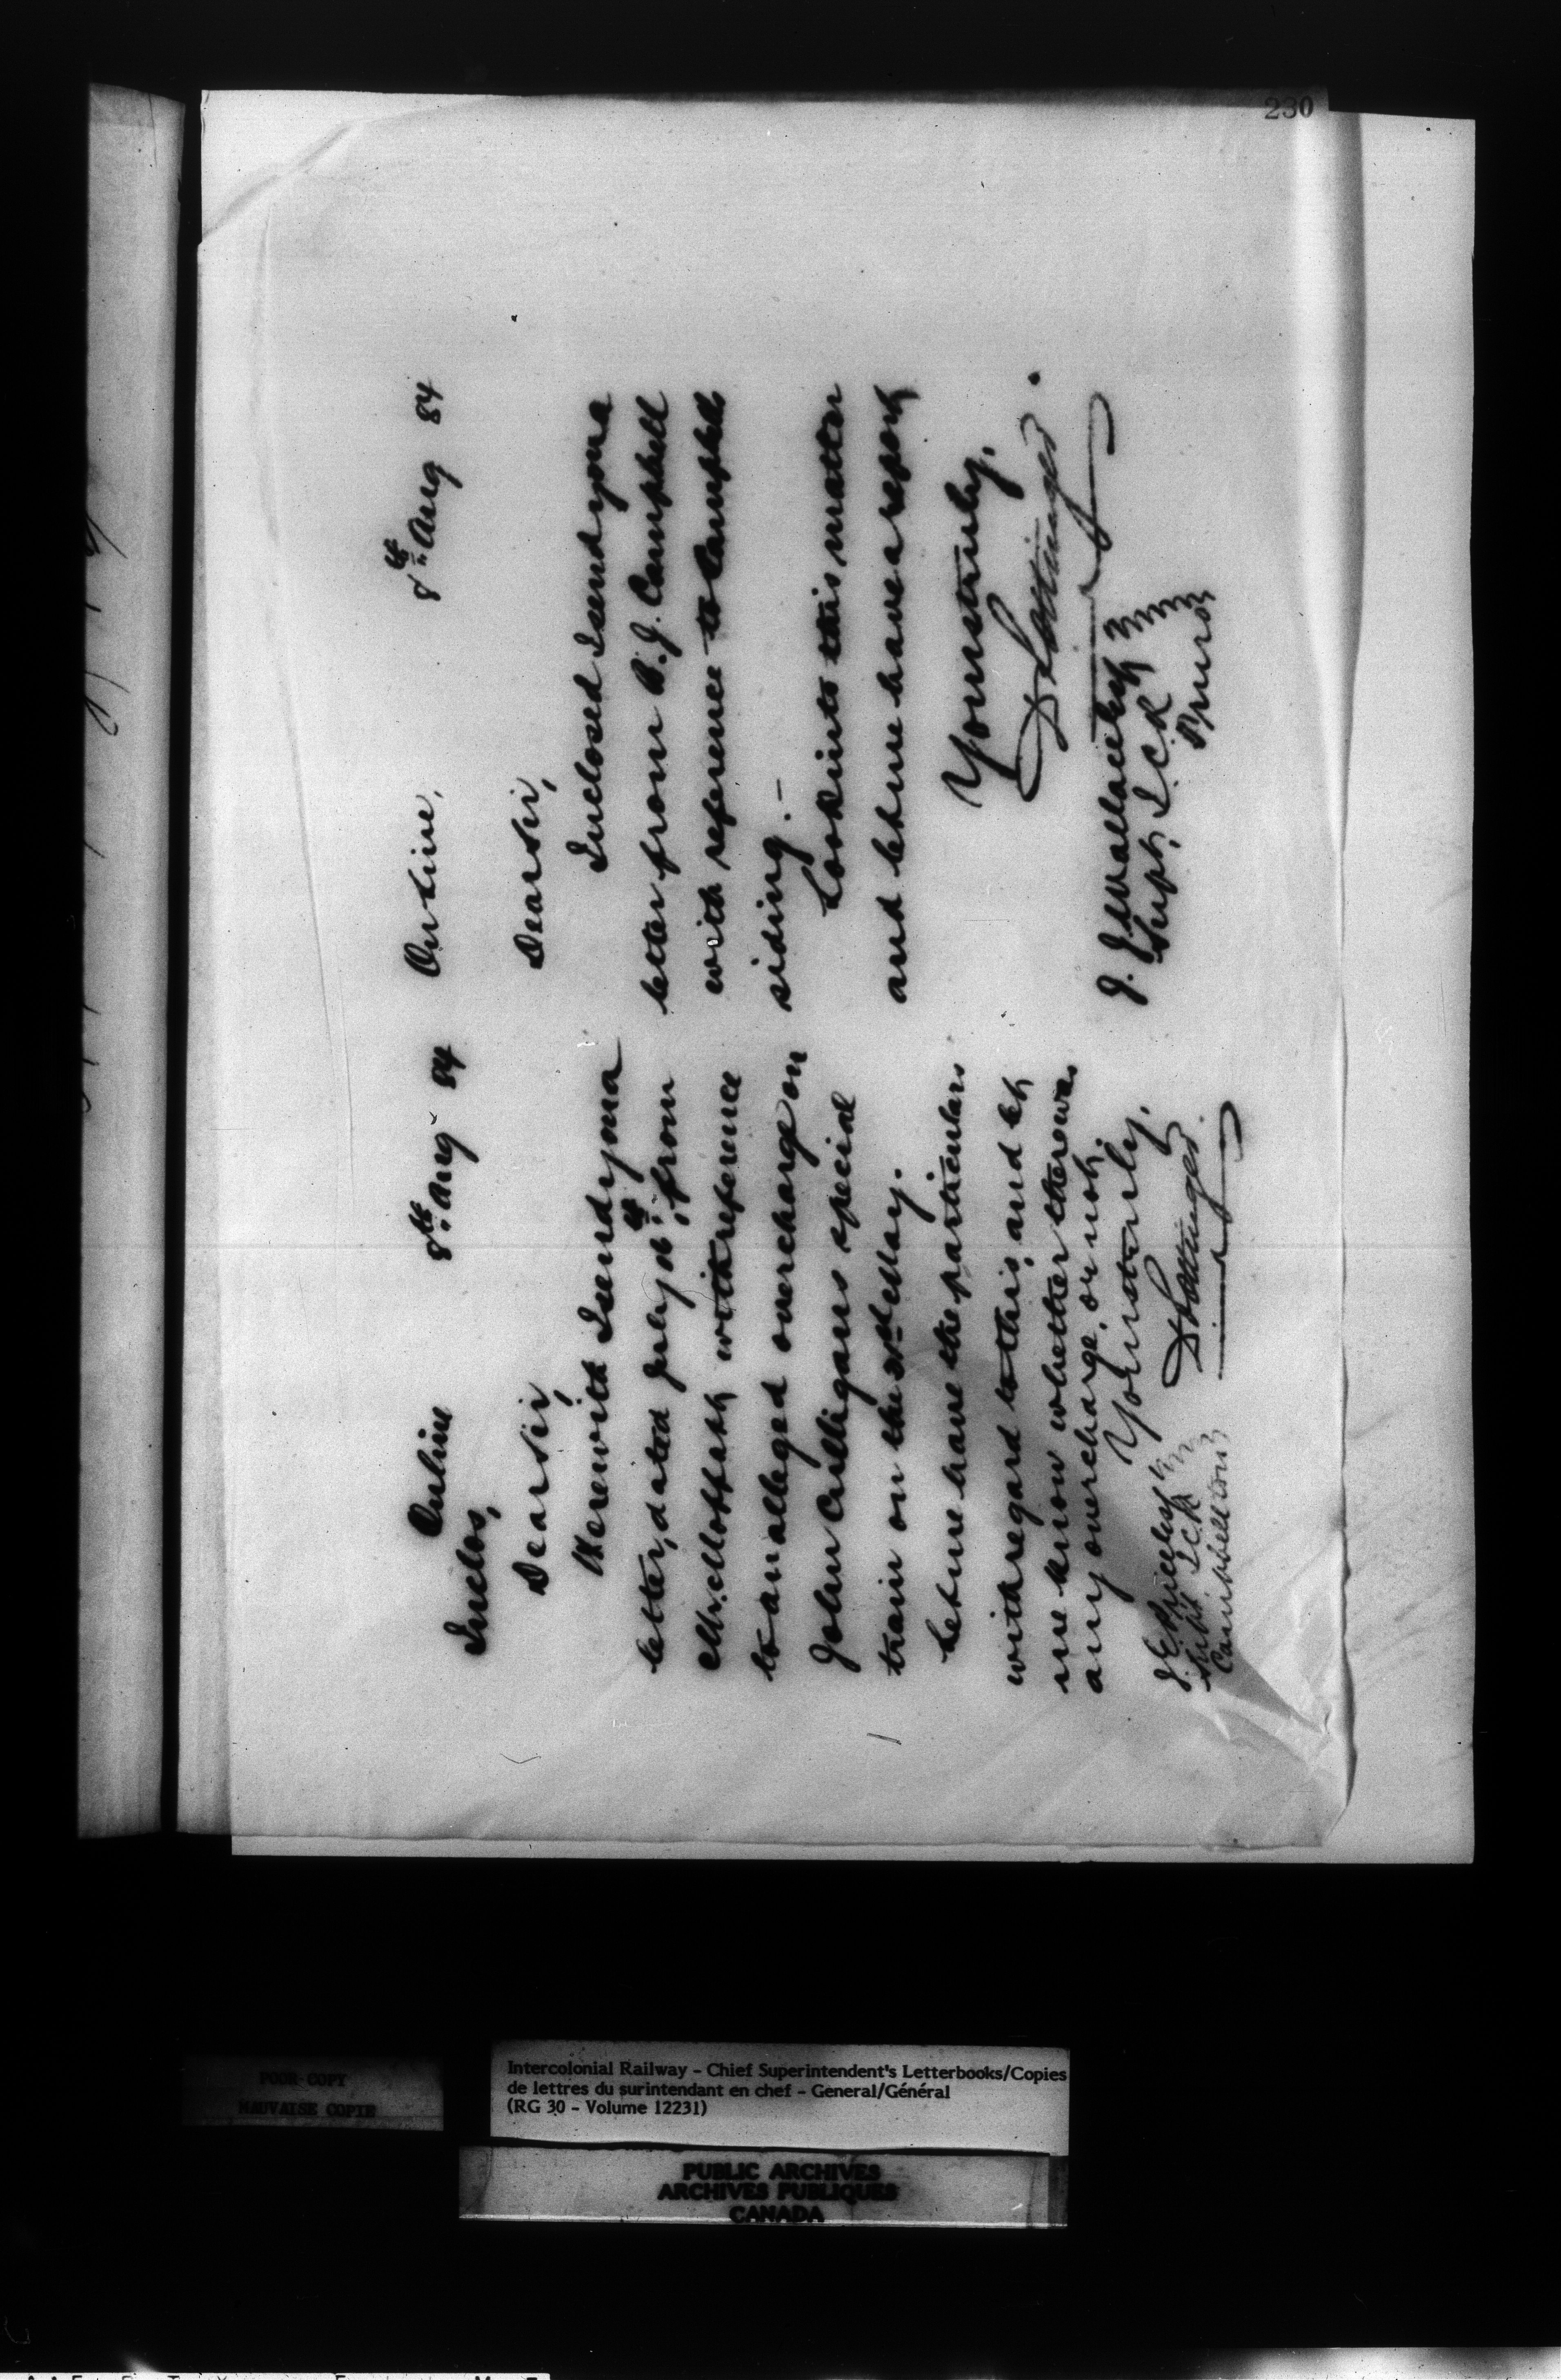 230
On line 8th Aug 84
Inclos,
Dear Sir,
Herewith I send you a
letter, dated July 2th, from
Mr. Moffatt with reference
to an alleged overcharge on
John Culligans special
train on the 3rd May.
Let me have the particulars
with regard to this, and let
me know whether there was
any overcharge, or not.
Yours truly,
D Pottinger
J. E. Price Esq
Supt I.C.R
Campbellton
On Line, 8th Aug 84
Dear Sir,
Inclosed I send you a
letter from B. J. Campbell
with reference to Campbells
siding. –
Look into this matter
and let me have a report
Yours truly,
D Pottinger.
J. J. Wallace Esq
Supt, I.C.R
Truro
POOR COPY
MAUVAISE COPIE
Intercolonial Railway - Chief Superintendent's Letterbooks/Copies
de lettres du surintendant en chef - General/Général
(RG 30 - Volume 12231)
PUBLIC ARCHIVES
ARCHIVES PUBLIQUES
CANADA